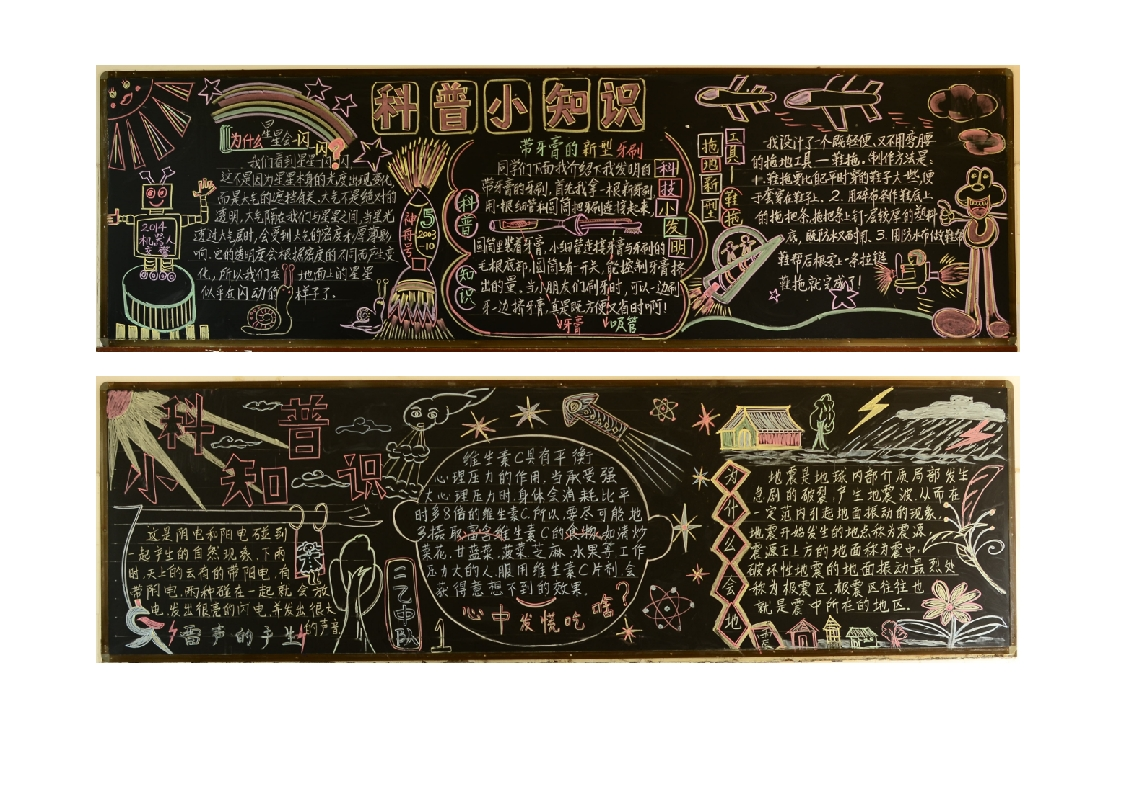 科普小知识
为什么星星会闪闪?
我们看到星星闪闪
这不是因为星星本身的光度出现变化,
而是大气的遮挡有关。大气不是绝对的
透明,大气隔在我们与星星之间,当星光
透过大气层时,会受到大气的密度和厚薄影
响。它的透明度会根据密度的不同而产生变
化,所以我们在地面上的星星
似乎在闪动的样子了。
2014
机器人
神舟号
5
2003
-10
科普知识
带牙膏的新型牙刷
同学们下面我介绍下我发明的
带牙膏的牙刷,首先我拿一根新牙刷,
用一根细管和圆筒把牙刷连接起来,
圆筒里装着牙膏,小细管连接牙膏与牙刷的
毛根底部,圆筒上有一开关,能控制牙膏挤
出的量。当小朋友们刷牙时,可以一边刷
牙一边挤牙膏,真是既方便又省时啊!
牙膏 吸管
科技小发明
拖地新型
工具—鞋拖
我设计了一个既轻便,又不用弯腰
的拖地工具—鞋拖。制作方法是:
1.鞋拖要比平时穿的鞋子大些,便
于套穿在鞋子上。2.用碎布条作鞋底上
的拖把条,拖把条上钉一层较厚的塑料
底,既防水又耐用。3.用防水布做鞋帮
鞋帮后根安上一条拉链
鞋拖就完成了!
科普
小知识
这是阴电和阳电碰到
一起产生的自然现象。下雨
时,天上的云有的带阳电,有
带阴电,两种碰在一起就会放
电,发出很亮的闪电,并发出很大
的声音
雷声的产生
二乙中队
维生素C具有平衡
心理压力的作用,当承受强
大心理压力时,身体会消耗比平
时多8倍的维生素C。所以,要尽可能地
多摄取富含维生素C的食物,如清炒
菜花、甘蓝菜、菠菜、芝麻、水果等,工作
压力大的人,服用维生素C片剂,会
获得意想不到的效果。
心中发慌吃啥?
为什么会地
震
地震是地球内部介质局部发生
急剧的破裂,产生地震波,从而在
一定范内引起地面振动的现象。
地震开始发生的地点称为震源,
震源正上方的地面称为震中,
破坏性地震的地面振动最烈处
称为极震区,极震区往往也
就是震中所在的地区。